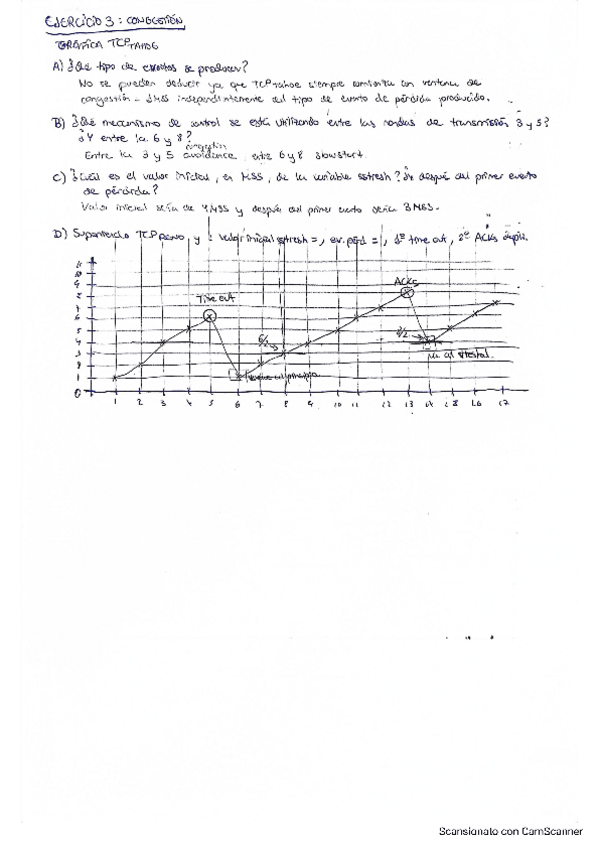 EJERCICIO 3: CONGESTIÓN
GRÁFICA TCP TAHOE
A) ¿Qué tipo de eventos se producen?
No se pueden deducir ya que TCP tahoe siempre comienza con ventana de
congestión = 1 MSS independientemente del tipo de evento de pérdida producido.
B) ¿Qué mecanismo de control se está utilizando entre las rondas de transmisión 3 y 5?
¿Y entre la 6 y 8?
congestion
Entre la 3 y 5 avoidance, entre 6 y 8 slowstart.
C) ¿Cuál es el valor inicial, en MSS, de la variable sstresh? ¿Y después del primer evento
de pérdida?
Valor inicial sería de 4MSS y después del primer evento sería 3MSS.
D) Suponiendo TCP Reno, y valor inicial sstresh =, ev. pérd =, 1º time out, 2º ACKs duplic.
ACKs
Time out
6/2
8/2
9
8
7
6
5
4
3
2
1
0
1 2 3 4 5 6 7 8 9 10 11 12 13 14 15 16 17
Scansionato con CamScanner